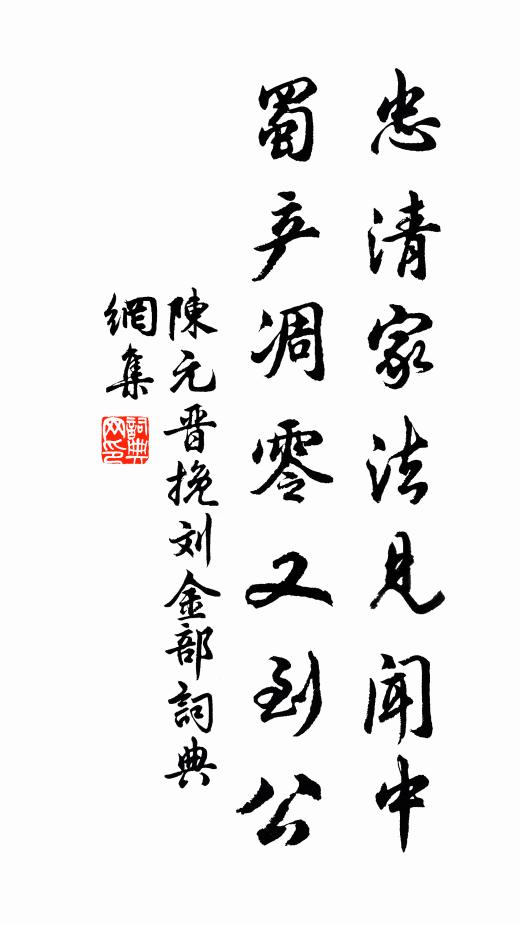 忠清家法见闻中
蜀产凋零又到公
陳元晋挽刘金部詞典
網集
詞典
网印